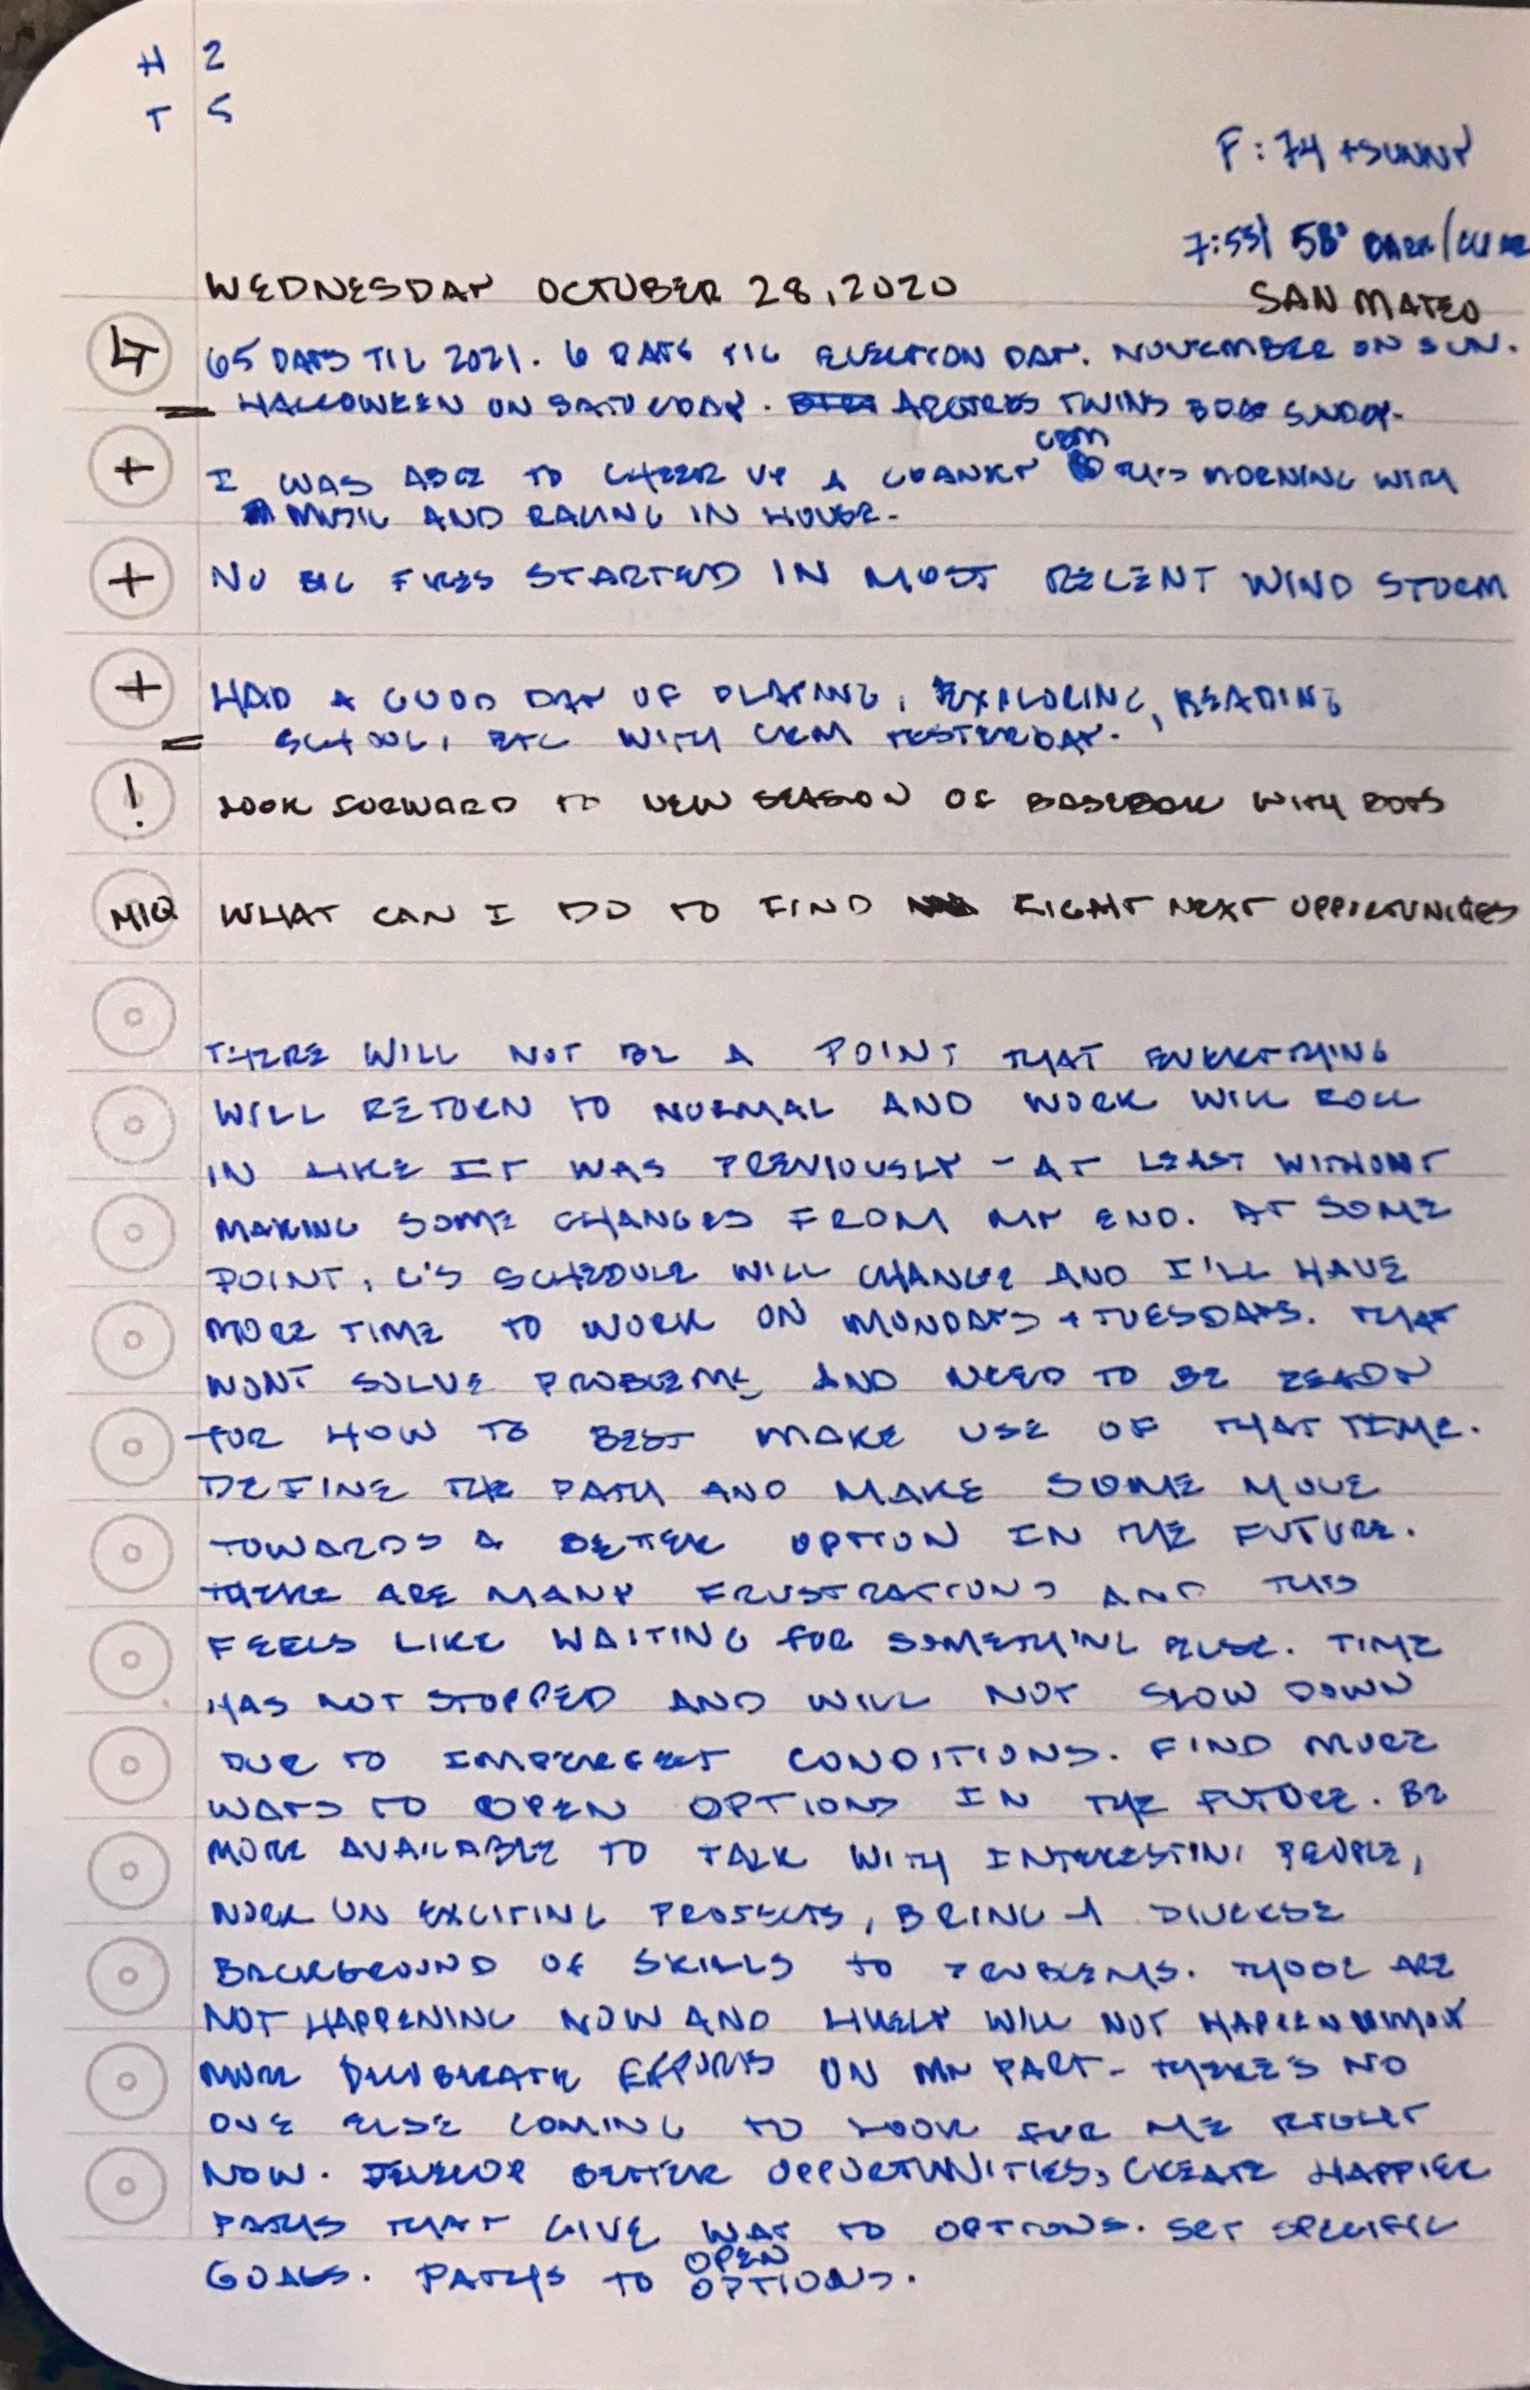 H 2
T 5
F: 74 + SUNNY
7:53| 58° DARK/CLEAR
WEDNESDAY OCTOBER 28, 2020
SAN MATEO
LT 65 DAYS TIL 2021. 6 DAYS TIL ELECTION DAY. NOVEMBER ON SUN.
HALLOWEEN ON SATURDAY. TWINS BDAY SUNDAY.
CRM
+ I WAS ABLE TO CHEER UP A CRANKY THIS MORNING WITH
MUSIC AND RACING IN HOUSE.
+ NO BIG FIRES STARTED IN MOST RECENT WIND STORM
+ HAD A GOOD DAY OF PLAYING, EXPLORING, READING
SCHOOL, ETC WITH CRM YESTERDAY.
! LOOK FORWARD TO NEW SEASON OF BASEBALL WITH BOYS
MIQ WHAT CAN I DO TO FIND RIGHT NEXT OPPORTUNITIES
THERE WILL NOT BE A POINT THAT EVERYTHING
WILL RETURN TO NORMAL AND WORK WILL ROLL
IN LIKE IT WAS PREVIOUSLY - AT LEAST WITHOUT
MAKING SOME CHANGES FROM MY END. AT SOME
POINT, C'S SCHEDULE WILL CHANGE AND I'LL HAVE
MORE TIME TO WORK ON MONDAYS + TUESDAYS. THAT
WONT SOLVE PROBLEMS AND NEED TO BE READY
FOR HOW TO BEST MAKE USE OF THAT TIME.
DEFINE THE PATH AND MAKE SOME MOVE
TOWARDS A BETTER OPTION IN THE FUTURE.
THERE ARE MANY FRUSTRATIONS AND THIS
FEELS LIKE WAITING FOR SOMETHING ELSE. TIME
HAS NOT STOPPED AND WILL NOT SLOW DOWN
DUE TO IMPERFECT CONDITIONS. FIND MORE
WAYS TO OPEN OPTIONS IN THE FUTURE. BE
MORE AVAILABLE TO TALK WITH INTERESTING PEOPLE,
WORK ON EXCITING PROJECTS, BRING A DIVERSE
BACKGROUND OF SKILLS TO PROBLEMS. THOSE ARE
NOT HAPPENING NOW AND LIKELY WILL NOT HAPPEN WITHOUT
MORE DELIBERATE EFFORTS ON MY PART - THERE'S NO
ONE ELSE COMING TO LOOK FOR ME RIGHT
NOW. DEVELOP BETTER OPPORTUNITIES, CREATE HAPPIER
PATHS THAT GIVE WAY TO OPTIONS. SET SPECIFIC
GOALS. PATHS TO OPEN OPTIONS.